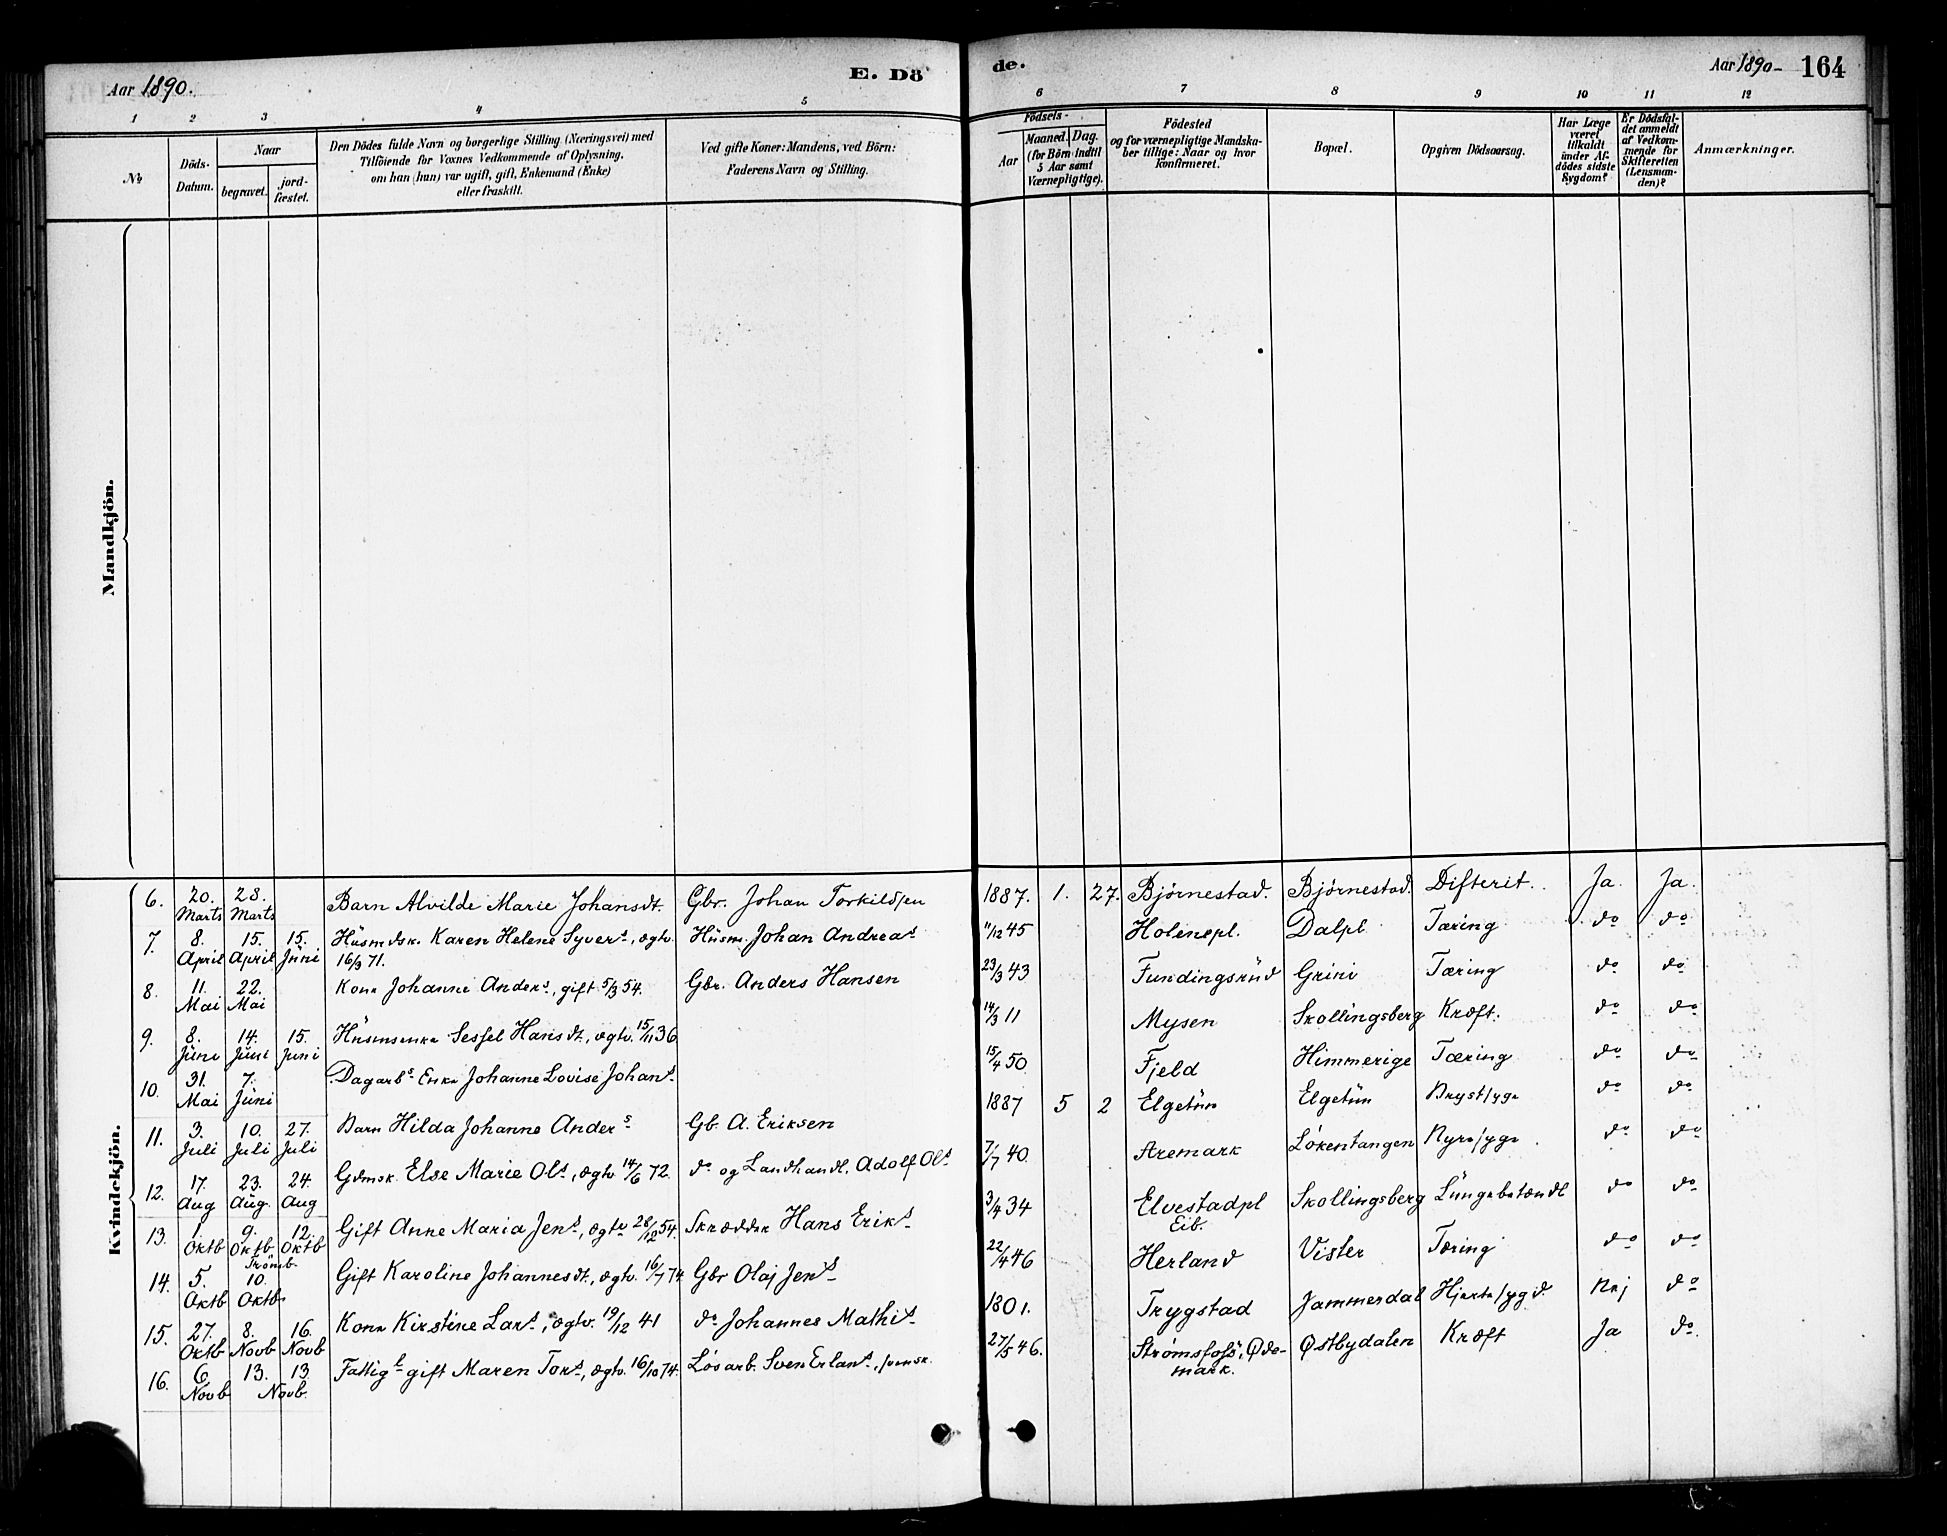 Aar 1890.
E. Dö
de.
Aar 1890- 164
1 2 3 4 5
6 7 8 9 10 11 12
№
Döds-
Datum.
Naar
begravet.
jord-
fæstet.
Den Dödes fulde Navn og borgerlige Stilling (Næringsvei) med
Tilföiende for Voxnes Vedkommende af Oplysning,
om han (hun) var ugift, gift, Enkemand (Enke)
eller fraskilt.
Ved gifte Koner: Mandens, ved Börn:
Faderens Navn og Stilling.
Födsels-
Aar
Maaned. Dag.
(for Börn indtil
5 Aar samt
Værnepligtige).
Födested
og for værnepligtige Mandska-
ber tillige: Naar og hvor
konfirmeret.
Bopæl.
Opgiven Dödsaarsag.
Har Læge
været
tilkaldt
under Af-
dödes sidste
Sygdom?
Er Dödsfal-
det anmeldt
af Vedkom-
mende for
Skifteretten
(Lensman-
den)?
Anmærkninger.
Mandkjön.
Kvindekjön.
6. 20. Marts 28. Marts Barn Alvilde Marie Johansdt. Gbr. Johan Torkildsen 1887. 1. 27. Bjørnestad. Bjørnestad. Difterit. Ja. Ja.
7. 8. April 15. April 15. Juni Husmdsk. Karen Helene Syvers, ægtv. Husm. Johan Andreas 11/12 45 Holenepl. Dalpl. Tæring do do
16/3 71.
8. 11. Mai 22. Mai Kone Johanne Anders, gift 5/3 54. Gbr. Anders Hansen 23/3 43 Fundingsrud Grini Tæring do do
9. 8. Juni 14. Juni 15. Juni Husmenke Sessel Hansdt., ægtv. 15/11 36 14/3 11 Mysen Skollingsberg Kræft. do do
10. 31. Mai 7. Juni Dagarbs Enke Johanne Lovise Johans 15/4 50 Fjeld Himmerige Tæring do do
11. 3. Juli 10. Juli 27. Juli Barn Hilda Johanne Anders Gb. A. Eriksen 1887 5 2 Elgetun Elgetun Brystsyge do do
12. 17. Aug 23. Aug. 24. Aug Gdmsk. Else Marie Ols, ægtv 14/6 72. do og Landhandl. Adolf Ols 7/7 40. Aremark Løkentangen Nyresyge do do
13. 1. Oktb 9. Oktb 12. Oktb Gift Anne Maria Jens, ægtv 28/12 54. Skrædder Hans Eriks 3/4 34 Elvestadpl Skollingsberg Lungebetændl do do
Trømb.
Eib.
14. 5. Oktb 10. Oktb Gift Karoline Johannesdt., ægtv. 16/7 74. Gbr Olaj Jens 22/4 46 Herland Vister Tæring do do
15. 27. Oktb 8. Novb 16. Novb Kone Kirstine Lars, ægtv. 19/12 41 do Johannes Mathis 1801. Trygstad Jammerdal Hjertesygd. Nej do
16. 6. Novb 13. 13. Novb. Fattigl gift Maren Tors, ægtv. 16/10 74. Løsarb. Sven Erlans, svensk. 27/5 46. Strømsfoss, Øde- Østbydalen Kræft Ja do.
mark.